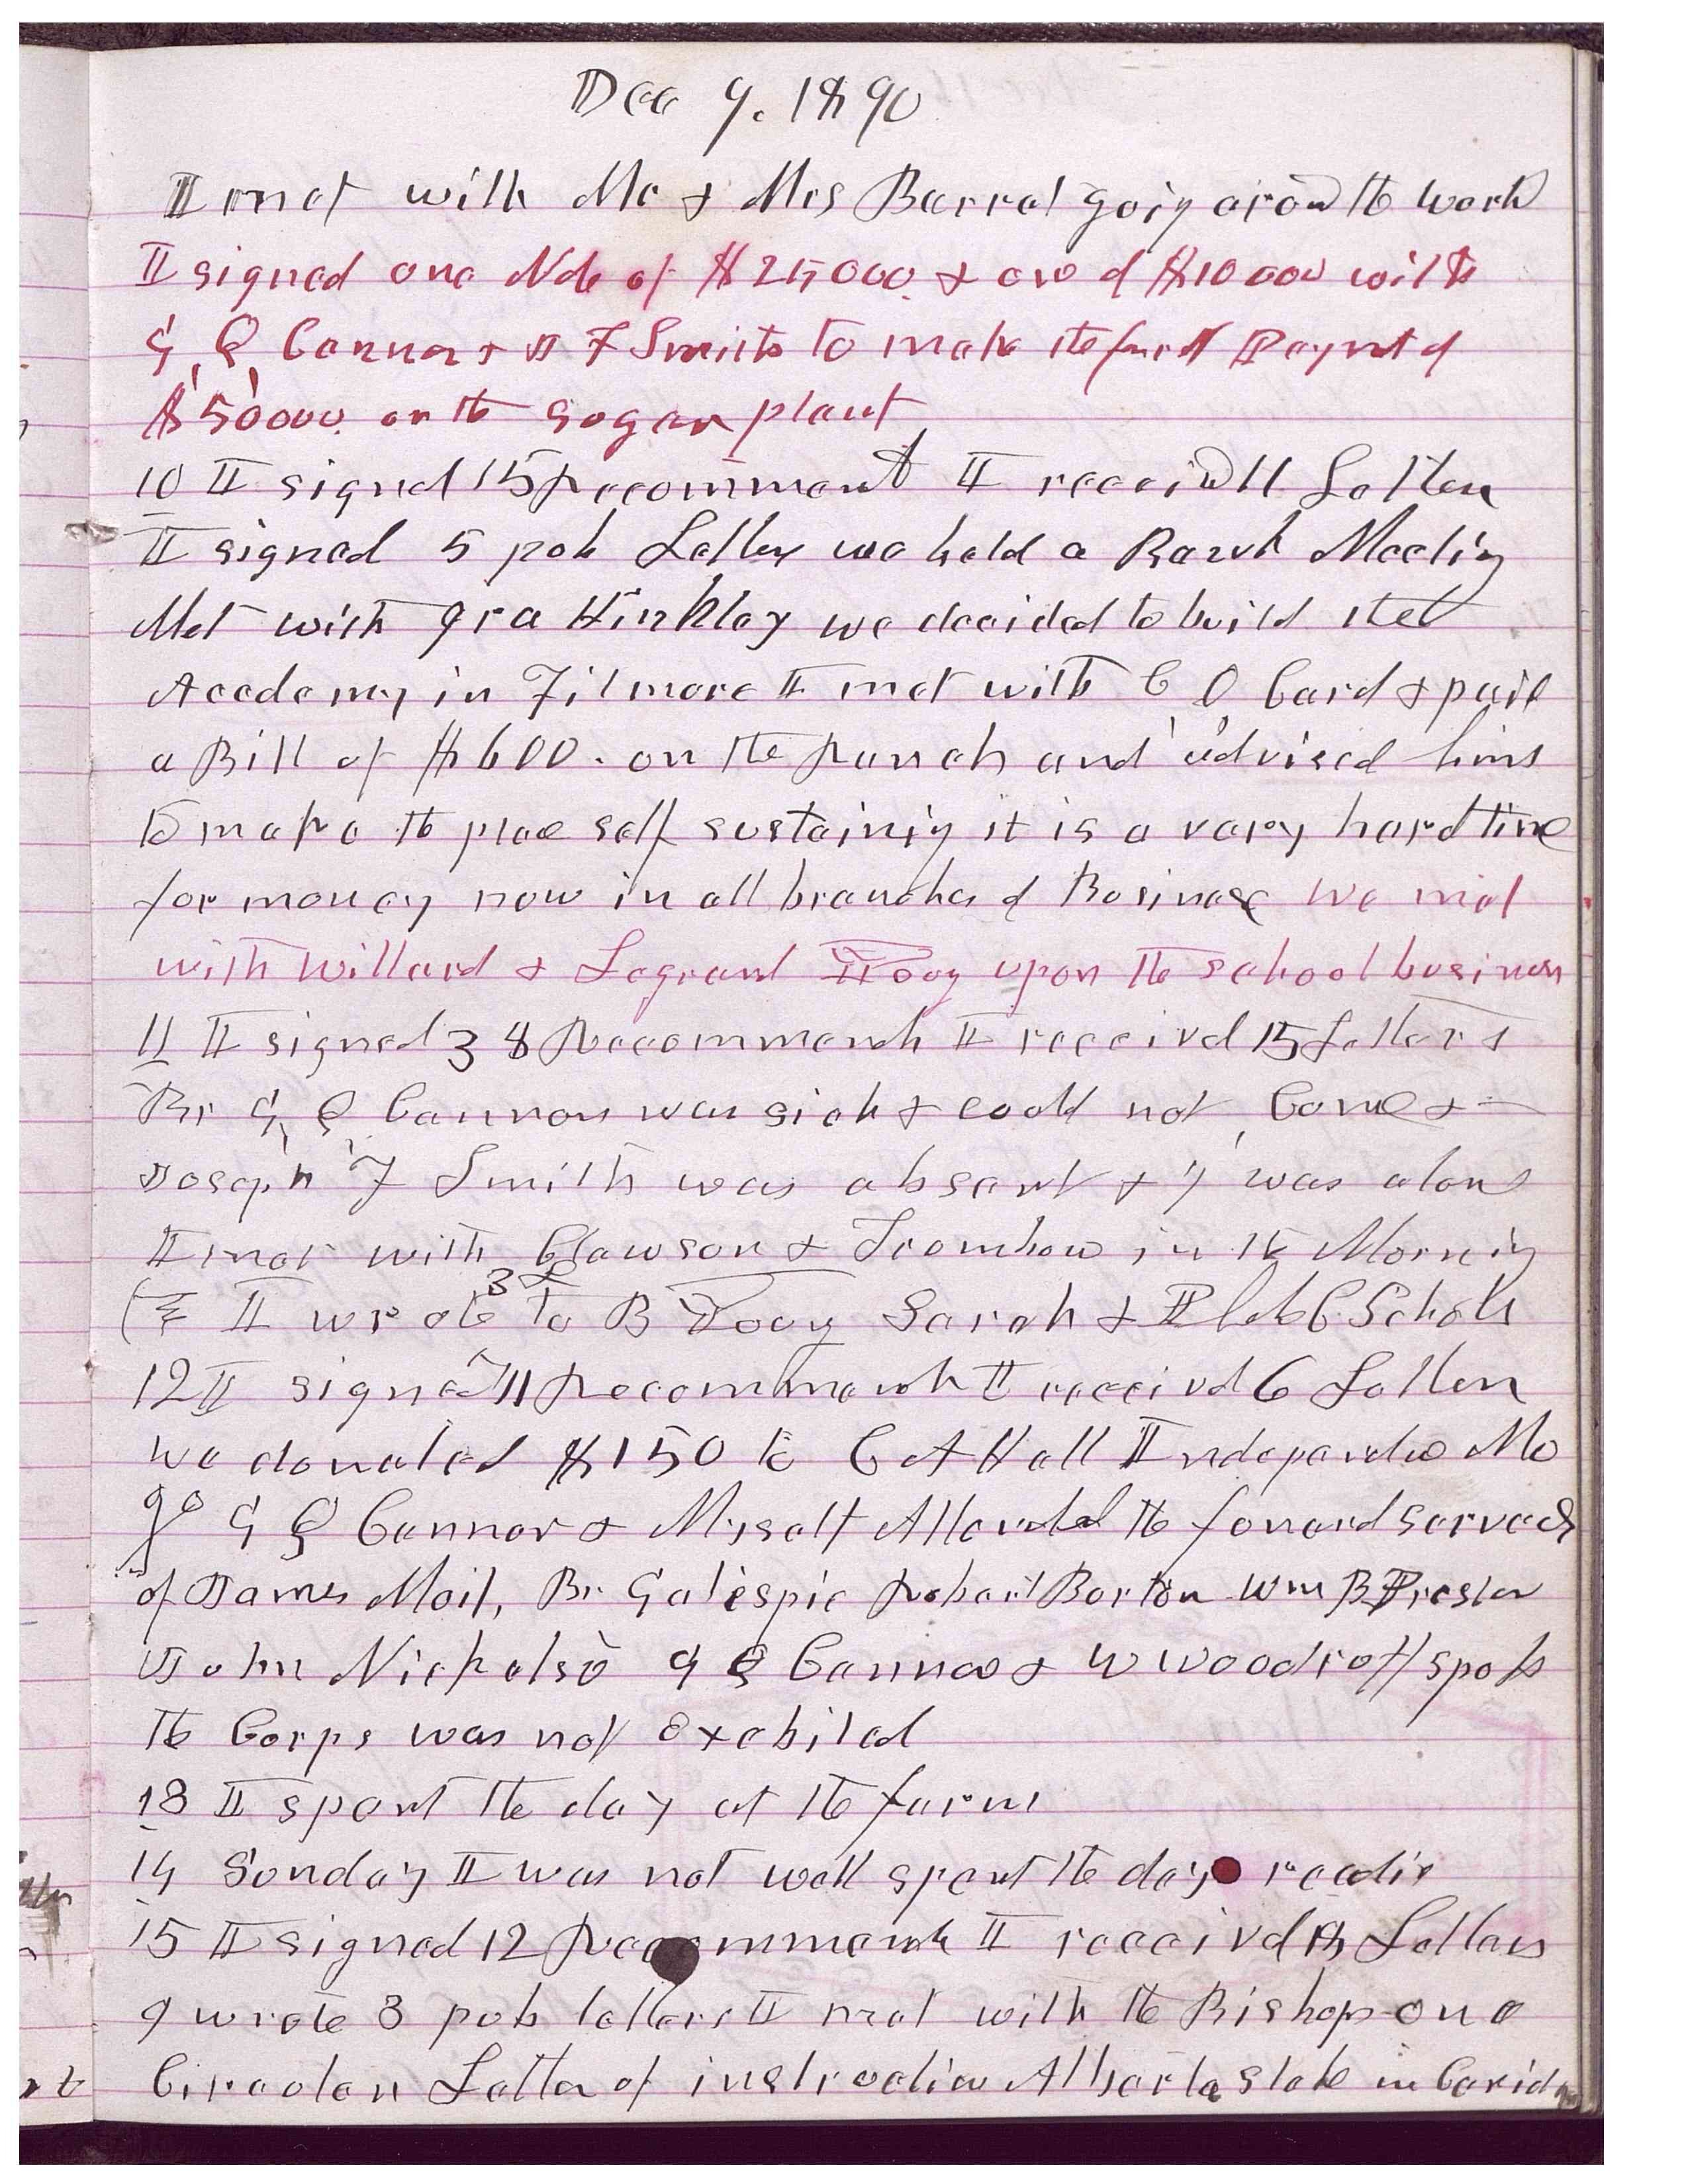 Dec 9. 1890
I met with Mr & Mrs Barrat going around the world
I signed one Note of $25000. & one of $10000 with
G Q Cannon & J F Smith to make the first Paymt of
$50000. on the Sugar plant
10 I signd 15 Recommend I receivd 11 Letters
I signed 5 pub Letters we held a Bank Meeting
Met with Ira Hinkley we decided to build the
Academy in Filmore I met with C O Card & paid
a Bill of $600. on the Ranch and advised him
to make the place self sustainig it is a very hard time
for money now in all branches of Business We met
with Willard & Legrand Young upon the school business
11 I signed 38 Recommends I receivd 15 Letters
Br G Q Cannon was sick & could not Come &
Joseph F Smith was absent & I was alone
I met with Clawson & Trombow in the Morning
I wrote 3 L to B Young Sarah & Phebe C Scholes
12 I signed 11 Recommends I receivd 6 Letters
we donated $150 to C A Hall Independce Mo
G Q Cannon & Myself Attended the foneral Servces
of James Moil, Br Galispie Robert Borton Wm B Preston
John Nickolso G Q Cannon & W Woodruff spoke
the Corps was not Exebited
13 I spent the day at the farm
14 Sunday I was not well spent the day readig
15 I signed 12 Recommends I receivd Letters
I wrote 3 pub letters I met with the Bishop on a
Circular Letter of instruction Alberta Stake in Canida